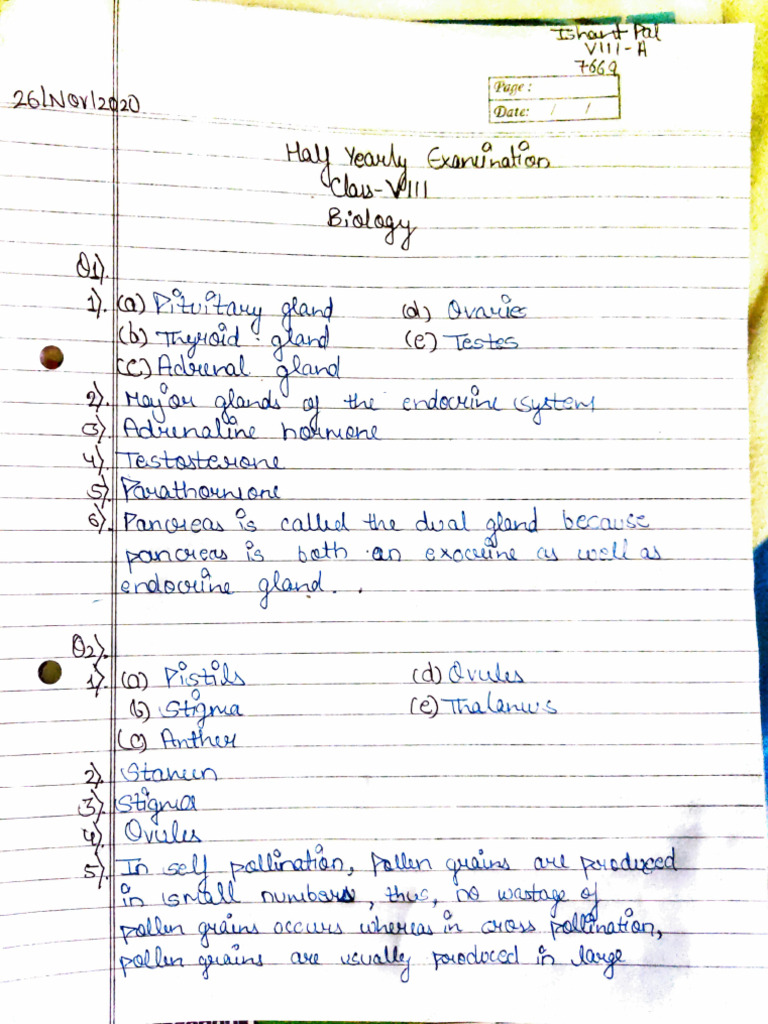 Ishant Pal
VIII-A
7669
Page:
Date: / /
26/Nov/2020
Half Yearly Examination
Class-VIII
Biology
Q1).
1). (a) Pituitary gland (d) Ovaries
(b) Thyroid gland (e) Testes
(c) Adrenal gland
2). Major glands of the endocrine system
3). Adrenaline hormone
4). Testosterone
5). Parathormone
6). Pancreas is called the dual gland because
pancreas is both an exocrine as well as
endocrine gland.
Q2).
1). (a) Pistils (d) Ovules
(b) Stigma (e) Thalamus
(c) Anther
2). Stamen
3). Stigma
4). Ovules
5). In self pollination, pollen grains are produced
in small numbers, thus, no wastage of
pollen grains occurs whereas in cross pollination,
pollen grains are usually produced in large